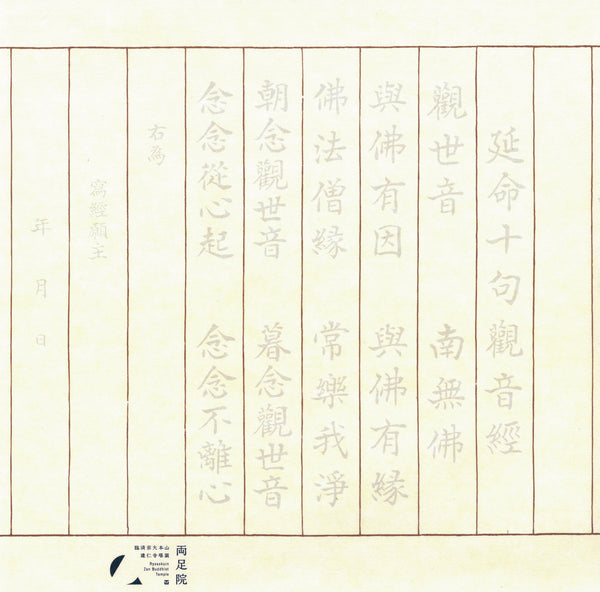 延命十句觀音經
觀世音 南無佛
與佛有因 與佛有緣
佛法僧緣 常樂我淨
朝念觀世音 暮念觀世音
念念從心起 念念不離心
右為
寫經願主
年 月 日
両足院
臨濟宗大本山
建仁寺塔頭
Ryosokuin
Zen Buddhist
Temple